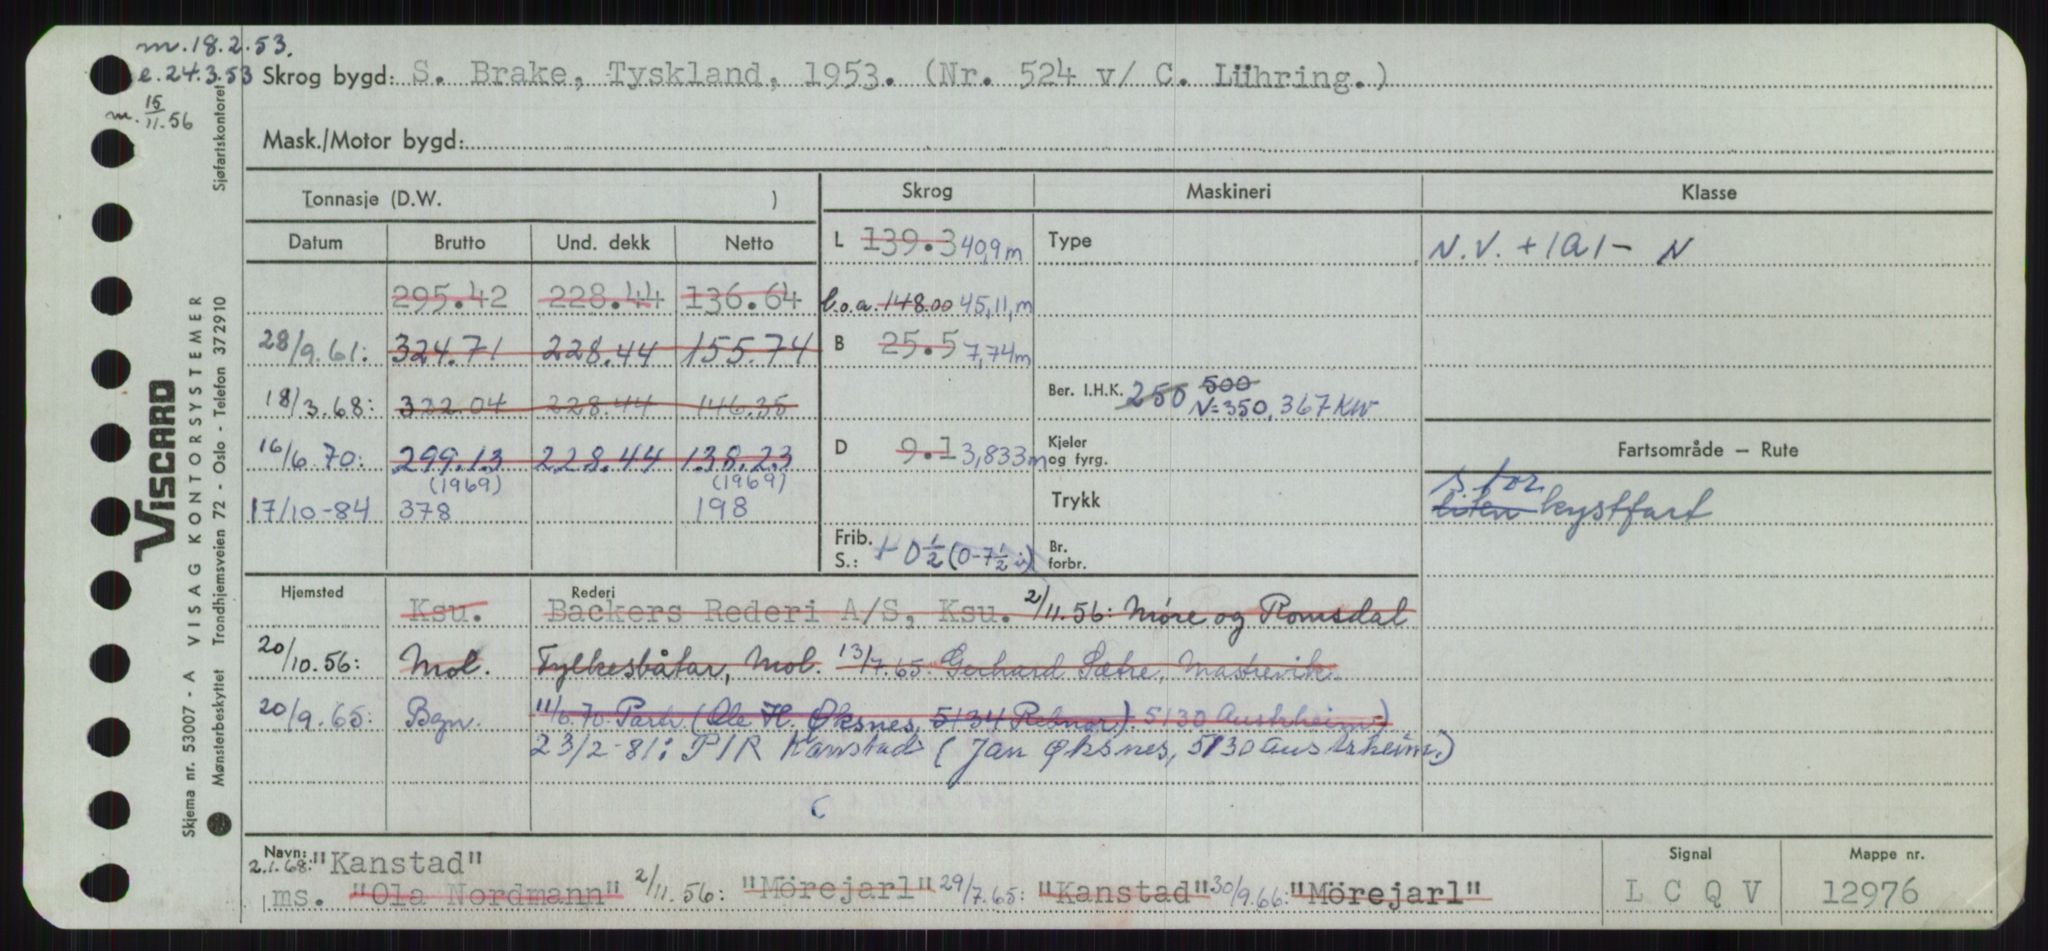 m. 18.2.53.
e. 24.3.53 Skrog bygd: S. Brake, Tyskland, 1953. (Nr. 524 v/ C. Lühring.)
m. 15/11.56
Mask./Motor bygd:
Tonnasje (D.W. )
Skrog Maskineri Klasse
Datum Brutto Und. dekk Netto
L 139.3 40,9 m Type N.V. + 1A1 - N
295.42 228.44 136.64 l.o.a. 148.00 45,11, m
28/9.61: 324.71 228.44 155.74 B 25.5 7,74 m
18/3.68: 322.04 228.44 146.35 Ber. I.H.K. 250 500 N=350, 367 KW
16/6.70: 299.13 228.44 138.23 D 9.1 3,833 m Kjeler og fyrg. Fartsområde – Rute
(1969) (1969)
17/10-84 378 198 Trykk stor liten kystfart
Frib. S.: + 0 1/2 (0-7 1/2 i) Br. forbr.
Hjemsted Rederi
Ksu. Backers Rederi A/S, Ksu. 2/11.56: Møre og Romsdal
20/10.56: Mol. Fylkesbåtar, Mol. 13/7.65: Gerhard Sætre, Mastrevik.
20/9.65: Bgn. 11/6.70: Partr. (Ole H. Øksnes, 5134 Rebnor). 5130 Austrheim)
23/2-81: P/R Kanstad (Jan Øksnes, 5130 Austrheim.)
Navn: Signal Mappe nr.
2.1.68: "Kanstad"
ms. "Ola Nordmann" 2/11.56: "Mörejarl" 29/7.65: "Kanstad" 30/9.66: "Mörejarl" L C Q V 12976
Skjema nr. 53007 - A VISAG KONTORSYSTEMER
VISCARD
Mønsterbeskyttet Trondhjemsveien 72 - Oslo - Telefon 372910 Sjøfartskontoret